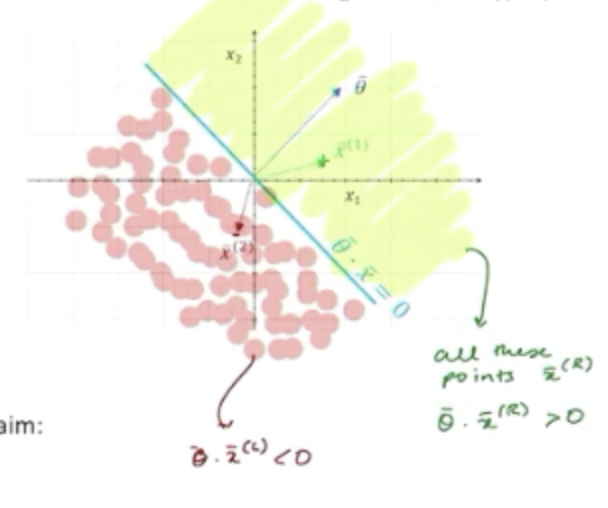 x₂
θ̄
x̄⁽¹⁾
x₁
x̄⁽²⁾
θ̄ · x̄ = 0
all these
points x̄⁽ᴿ⁾
θ̄ · x̄⁽ᴿ⁾ > 0
aim:
θ̄ · x̄⁽ᴸ⁾ < 0